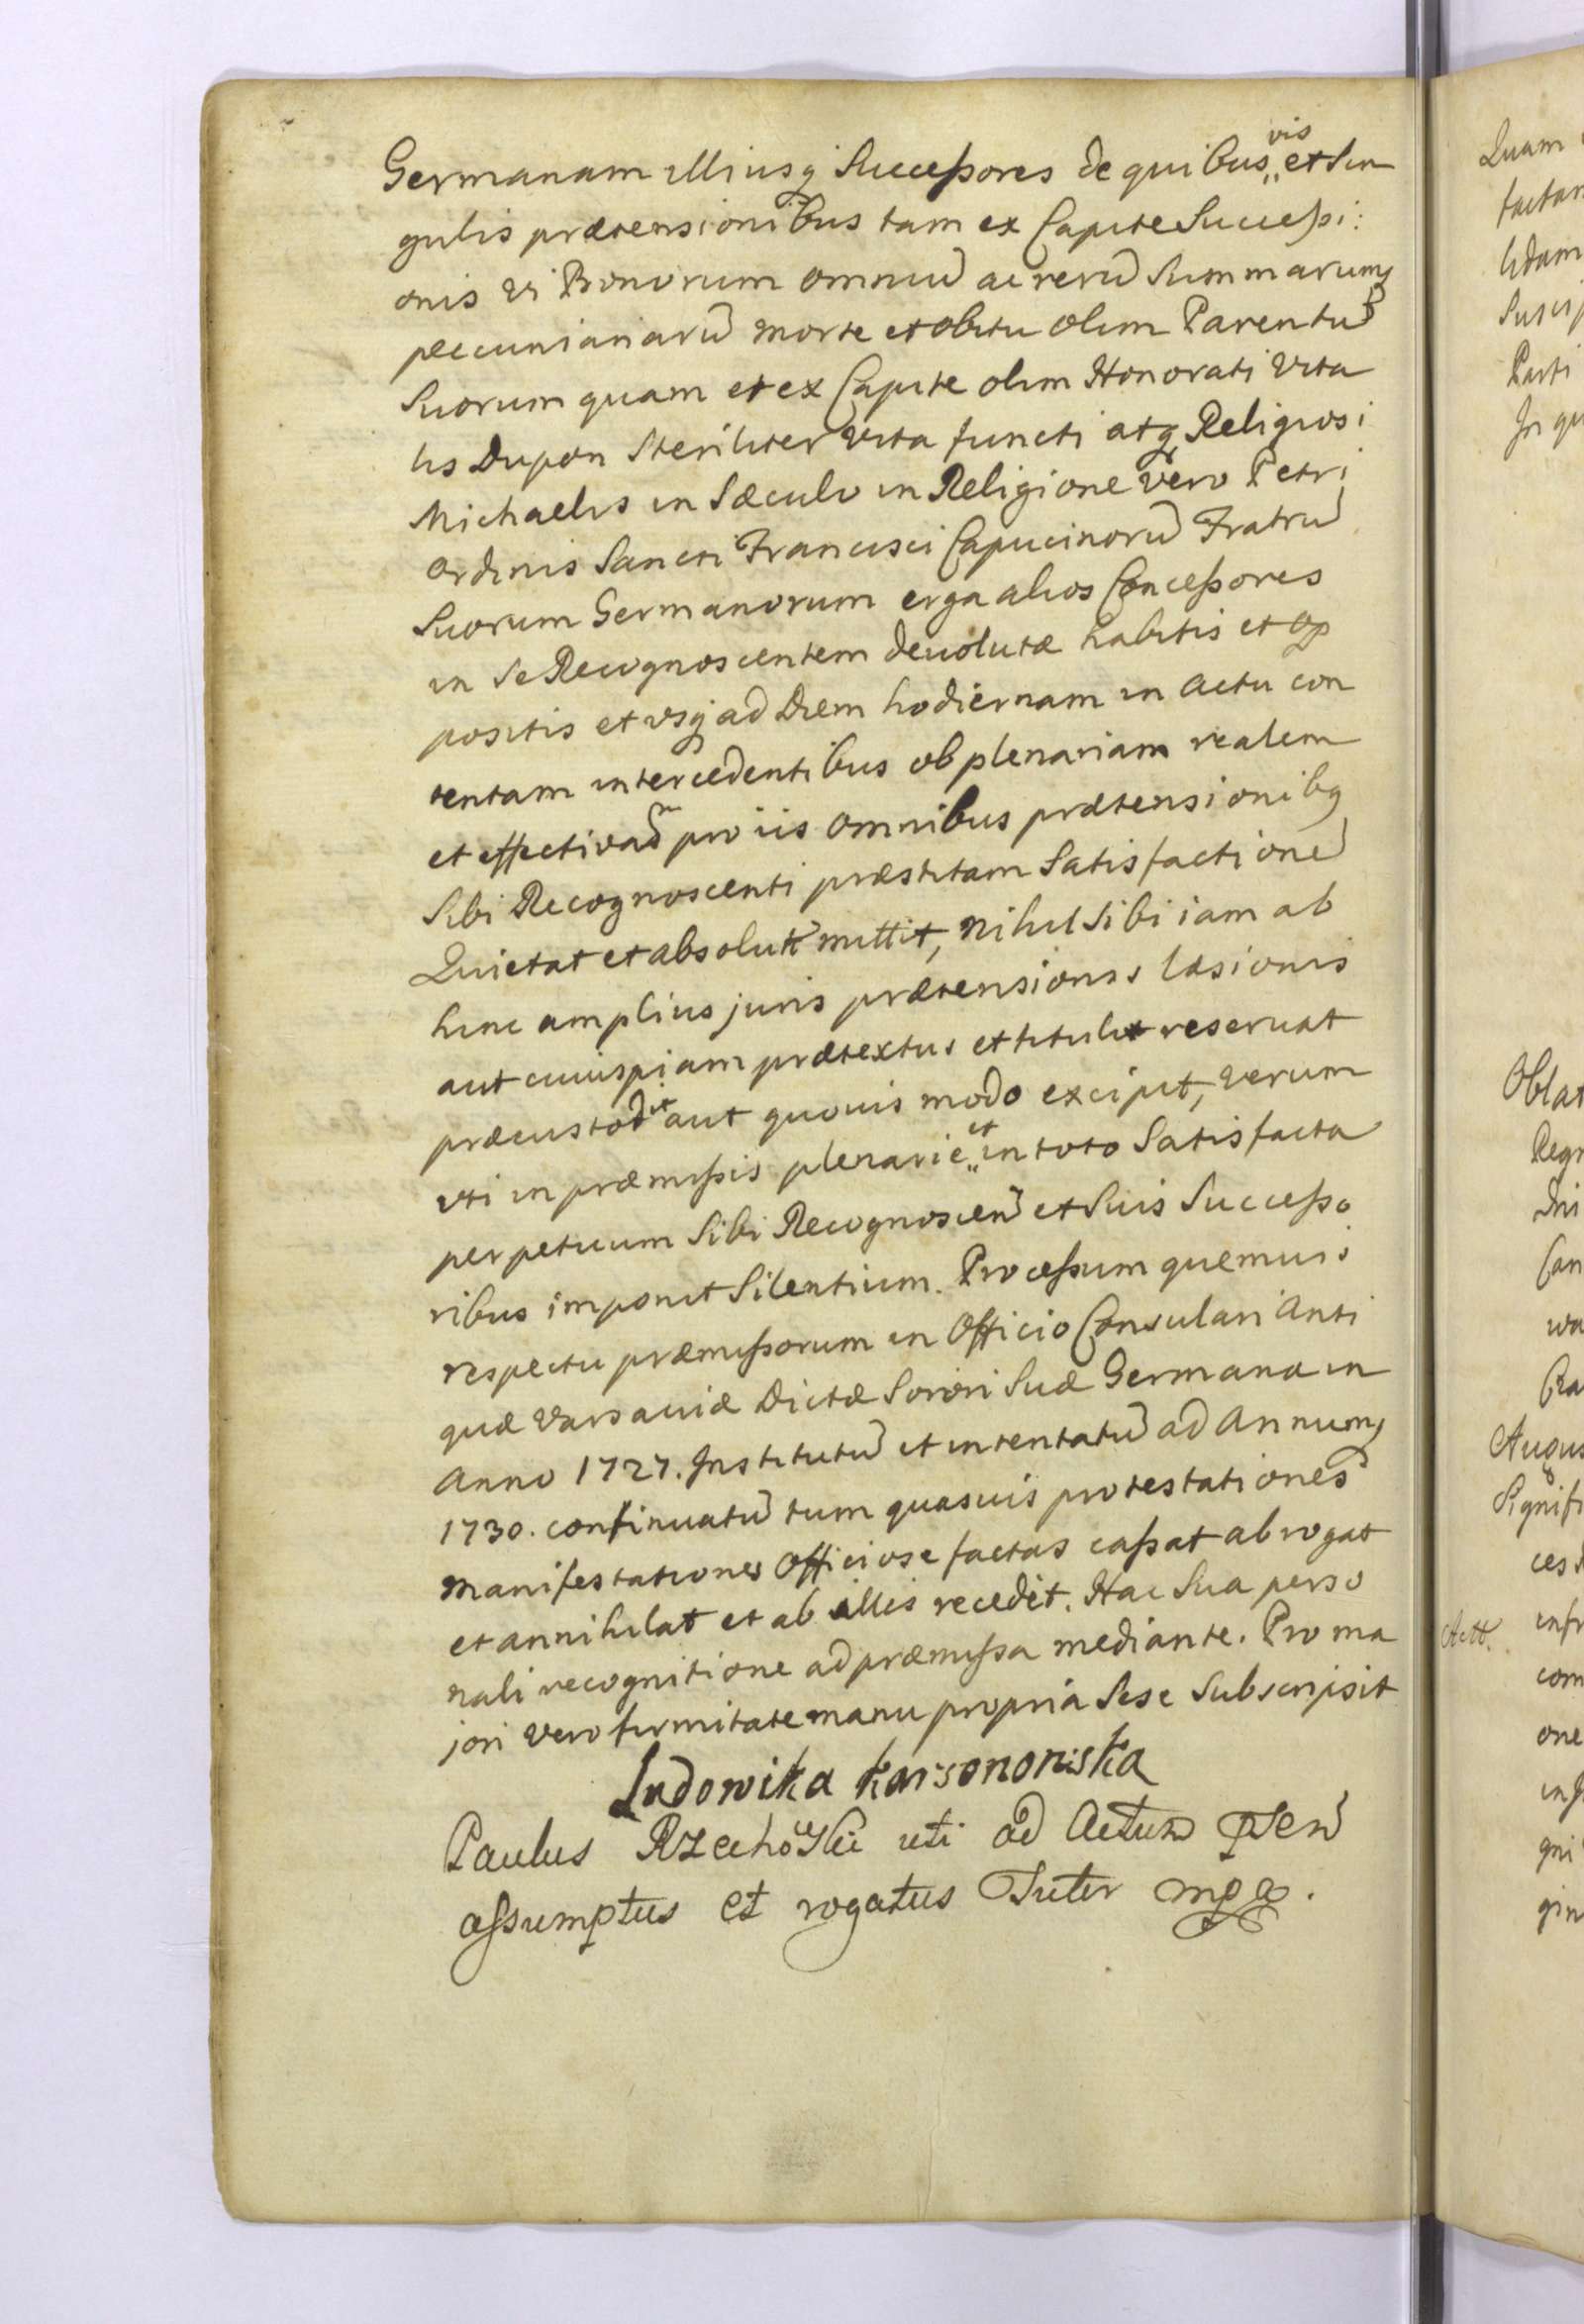 Germanam illiusq Successores de quibus vis et sin
gulis prætensionibus tam ex Capite Successi:
onis vi Bonorum omniu ac reru Summarumq
peccuniariaru morte et obitu olim Parentu
Suorum quam et ex Capite olim Honorati Vita
lis Dupon Steriliter vita functi atq Religiosi
Michaelis in Sæculo in Religione vero Petri
ordinis Sancti Francisci Capucinoru Fratru
Suorum Germanorum erga alios Concessores
in se Recognoscentem devolutæ habitis et op
positis et usq ad Diem hodiernam in actu con
tentam intercedentibus ob plenariam realem
et effectivam pro iis omnibus prætensionibq
Sibi Recognoscenti præstitam Satisfactione
Quietat et absolute mittit, nihil Sibi iam ab
hinc amplius juris prætensionis læsionis
aut cuiuspiam prætextus et tituli reservat
præcustodit aut quovis modo excipit, verum
uti in præmissis plenarie et in toto Satisfacta
perpetuum Sibi Recognoscen et Suis Successo
ribus imponit Silentium. Processum quemuis
respectu præmissorum in Officio Consulari Anti
quæ Varsaviæ Dictæ Sorori Suæ Germanæ in
Anno 1727. Institutu et intentatu ad Annum
1730. continuatu tum quasuis protestationes
manifestationes Officiose factas cassat abrogat
et annihilat et ab illis recedit. Hac Sua perso
nali recognitione ad præmissa mediante. Pro ma
jori vero firmitate manu propria Sese Subscripsit
Ludowika
Paulus uti ad Actum
assumptus et rogatus Tutor mpp.
Quam
factam
Parti
In qu
Oblat
Regn
Augus
Signifi
Actt.
infr
com
one
gni
gin